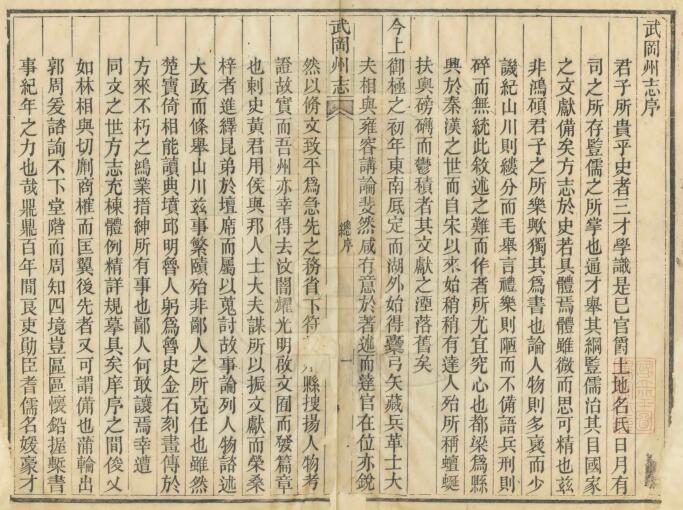 武岡州志序
君子所貴乎史者三才學識是已官爵土地名氏日月有
司之所存豎儒之所掌也通才舉其綱豎儒治其目國家
之文獻備矣方志於史若具體焉體雖微而思可精也茲
非鴻碩君子之所樂歟獨其為書也論人物則多褒而少
譏紀山川則縷分而毛舉言禮樂則陋而不備語兵刑則
碎而無統此敘述之難而作者所尤宜究心也都梁為縣
興於秦漢之世而自宋以來始稍稍有達人殆所稱蟺蜒
扶輿磅礡而鬱積者其文獻之湮落舊矣
今上御極之初年東南厎定而湖外始得櫜弓矢藏兵革士大
夫相與雍容講論斐然咸有意於著述而達官在位亦銳
武岡州志
總序
一
然以脩文致平為急先之務省下符 縣搜揚人物考
證故實而吾州亦幸得去汶闇耀光明啟文囿而發篇章
也刺史黃君用侯與邦人士大夫謀所以振文獻而榮桑
梓者進繹昆弟於壇席而屬以蒐討故事論列人物諮述
大政而條舉山川茲事繁賾殆非鄙人之所克任也雖然
楚寶倚相能讀典墳邱明魯人躬為魯史金石刻畫傳於
方來不朽之鴻業搢紳所有事也鄙人何敢讓焉幸遭
同文之世方志充棟體例精詳規摹具矣庠序之間俊乂
如林相與切劘商榷而匡翼後先者又可謂備也蒲輪出
郭周爰諮詢不下堂階而周知四境豈區區懷鉛握槧書
事紀年之力也哉鼎鼎百年間良吏勛臣耆儒名媛豪才